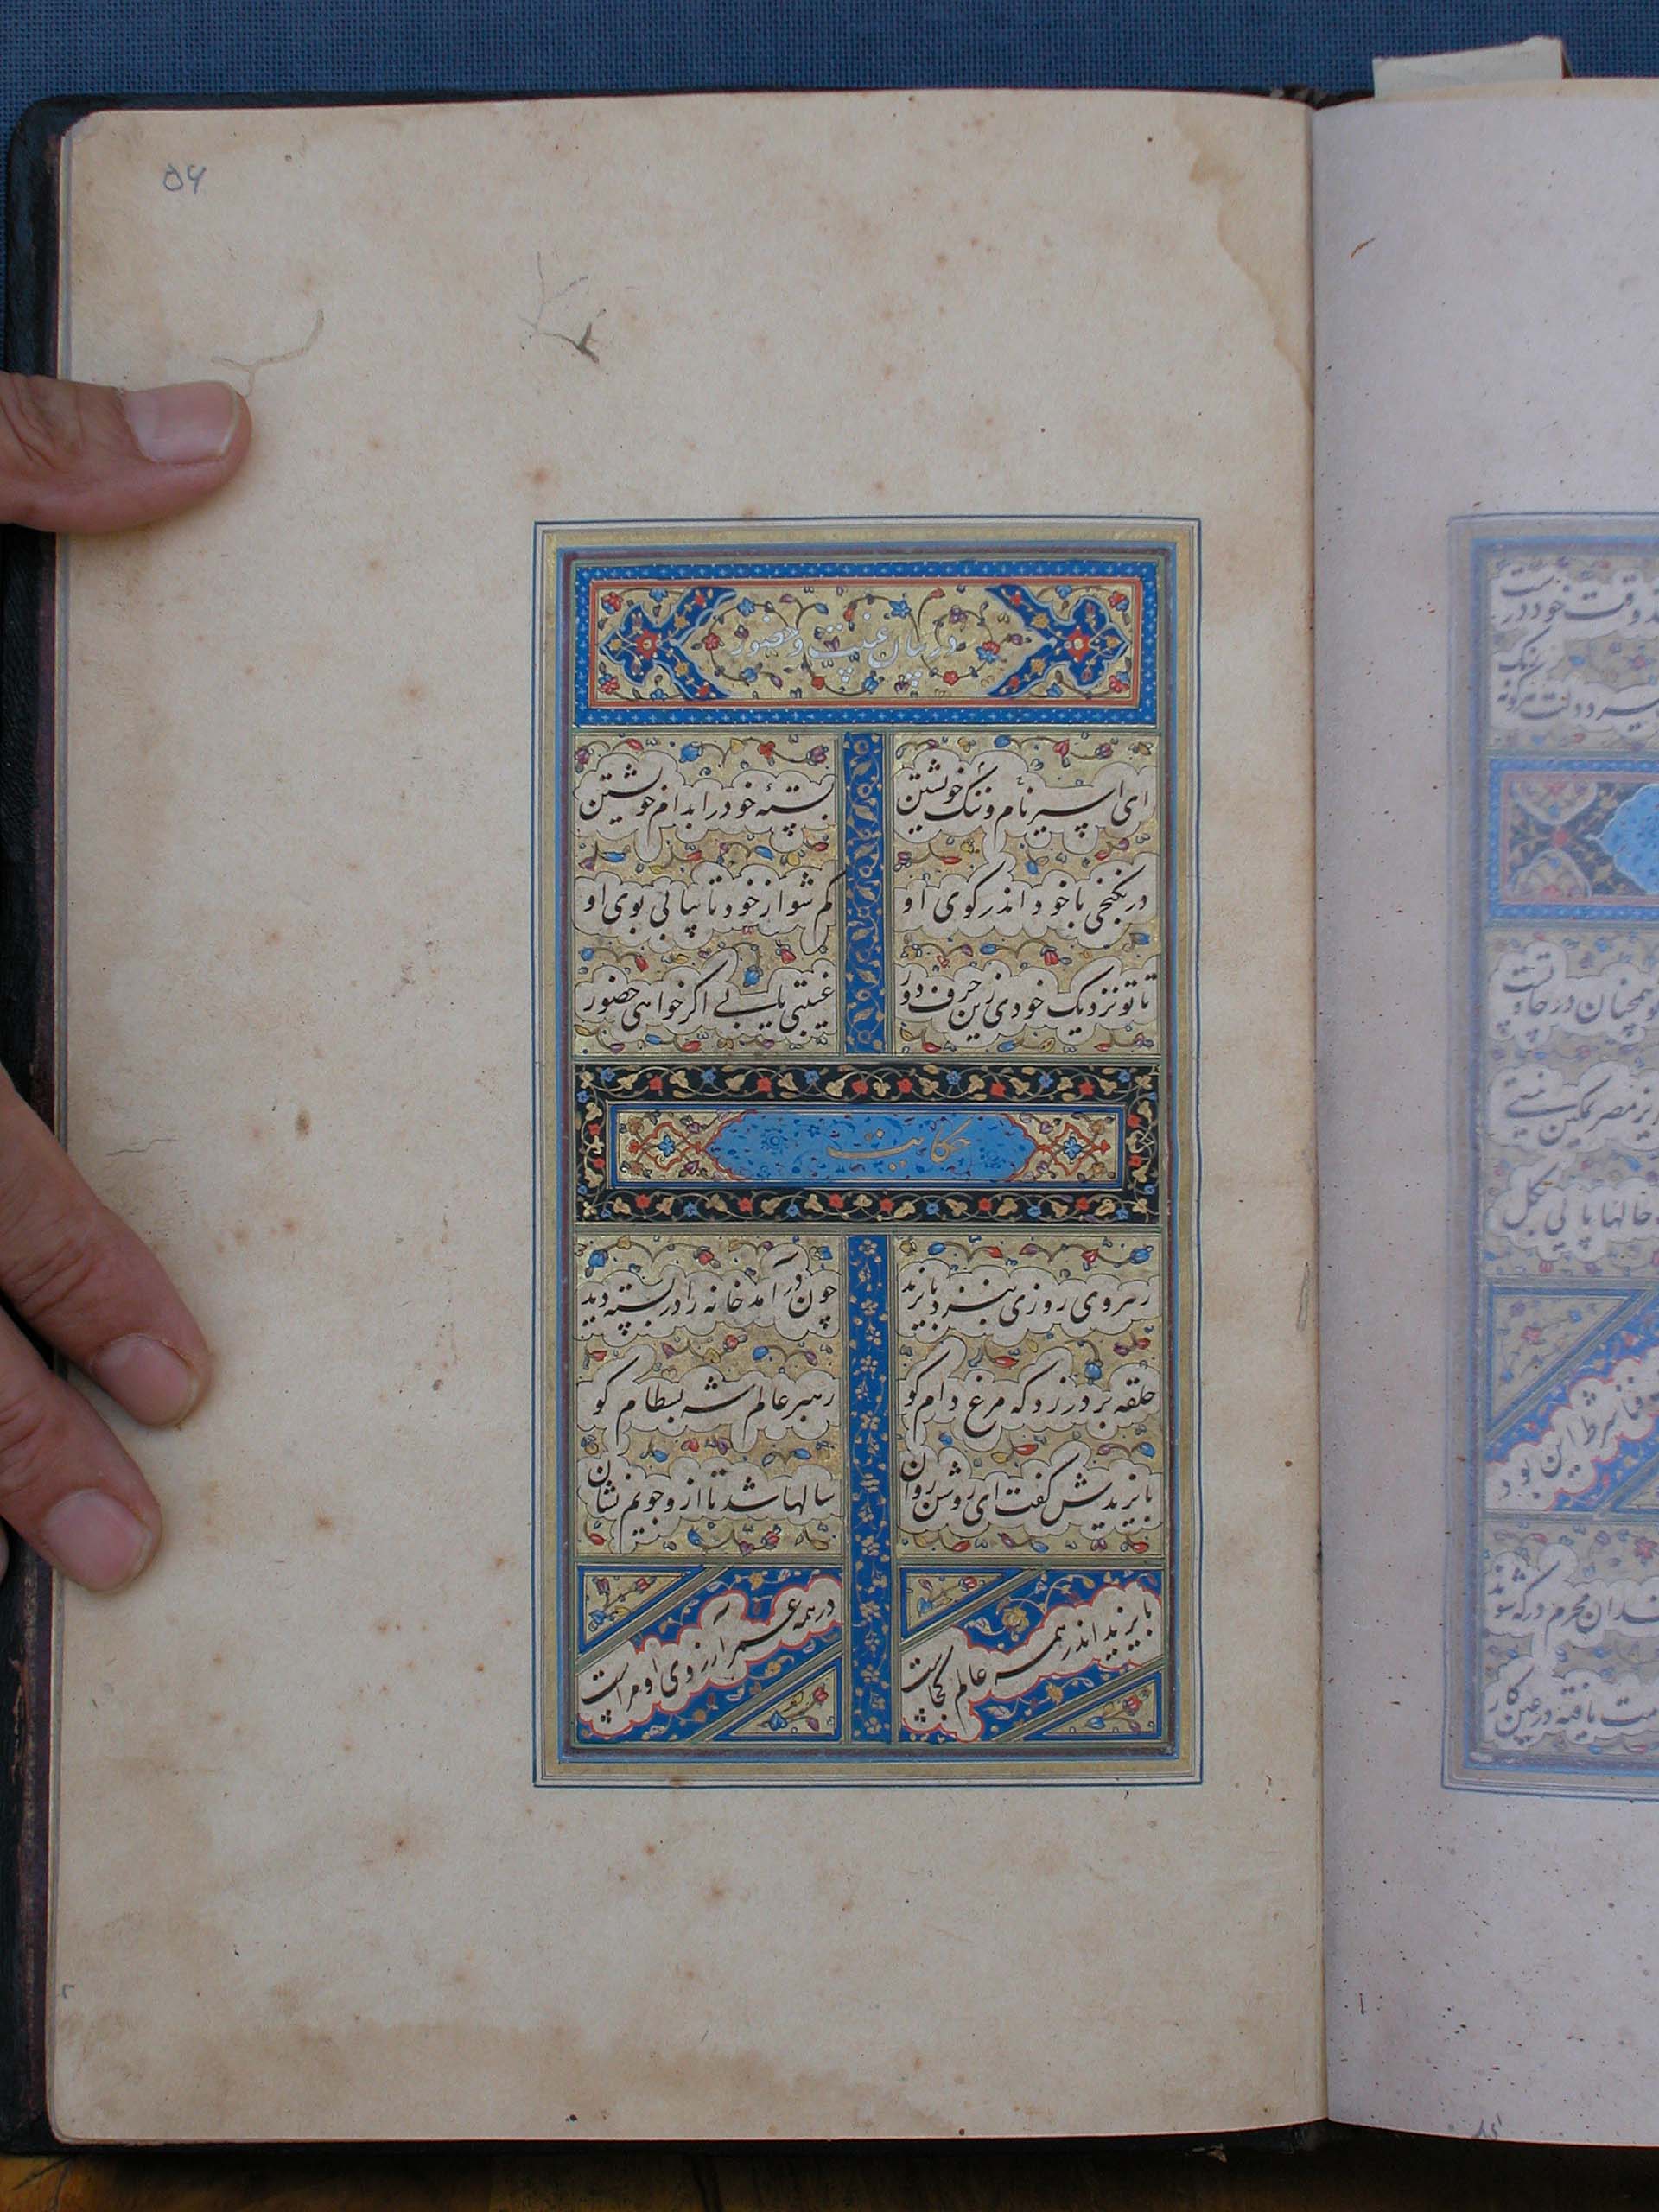 ۵۶
در بیان غیبت و حضور
ای اسیر نام و ننک خویشتن بستهٔ خود را بدام خویشتن
درنکنجی با خود اندر کوی او کم شو از خود تا بیابی بوی او
تا تو نزدیک خودی زین حرف دور غیبتی باید اکر خواهی حضور
حکایت
رهروی روزی بنزد بایزید چون درآمد خانه را در بسته دید
حلقه بر در زد که مرغ دام کو رهبر عالم شه بسطام کو
بایزیدش کفت ای روشن روان سالها شد تا ازو جویم نشان
بایزید اندر همه عالم کجاست در همه عمر آرزوی او مراست
وقت خود درست
همچنان در چاه
مصر
فنا شرط این بود
محرم درکه شوند
یافته در عین کار